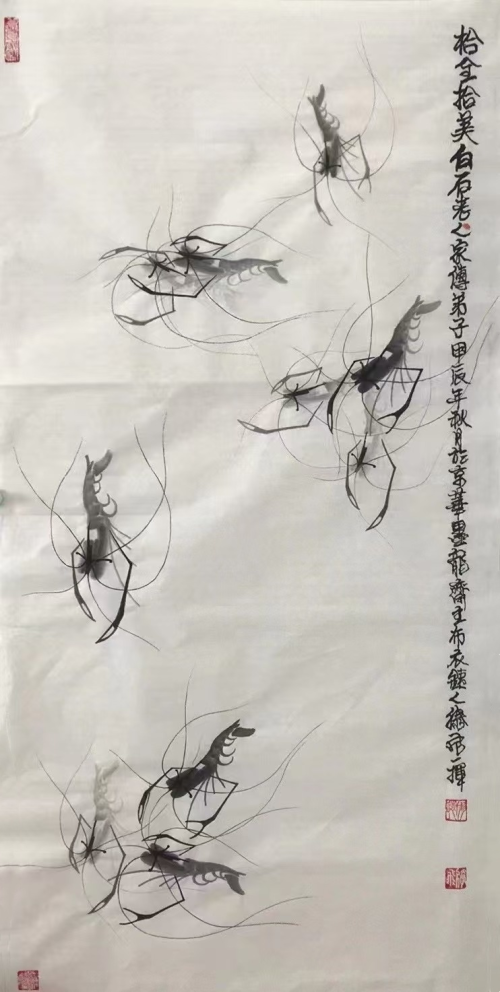 拾全拾美白石老人家傳弟子甲辰年秋月於京華墨龍齋主布衣鐵人